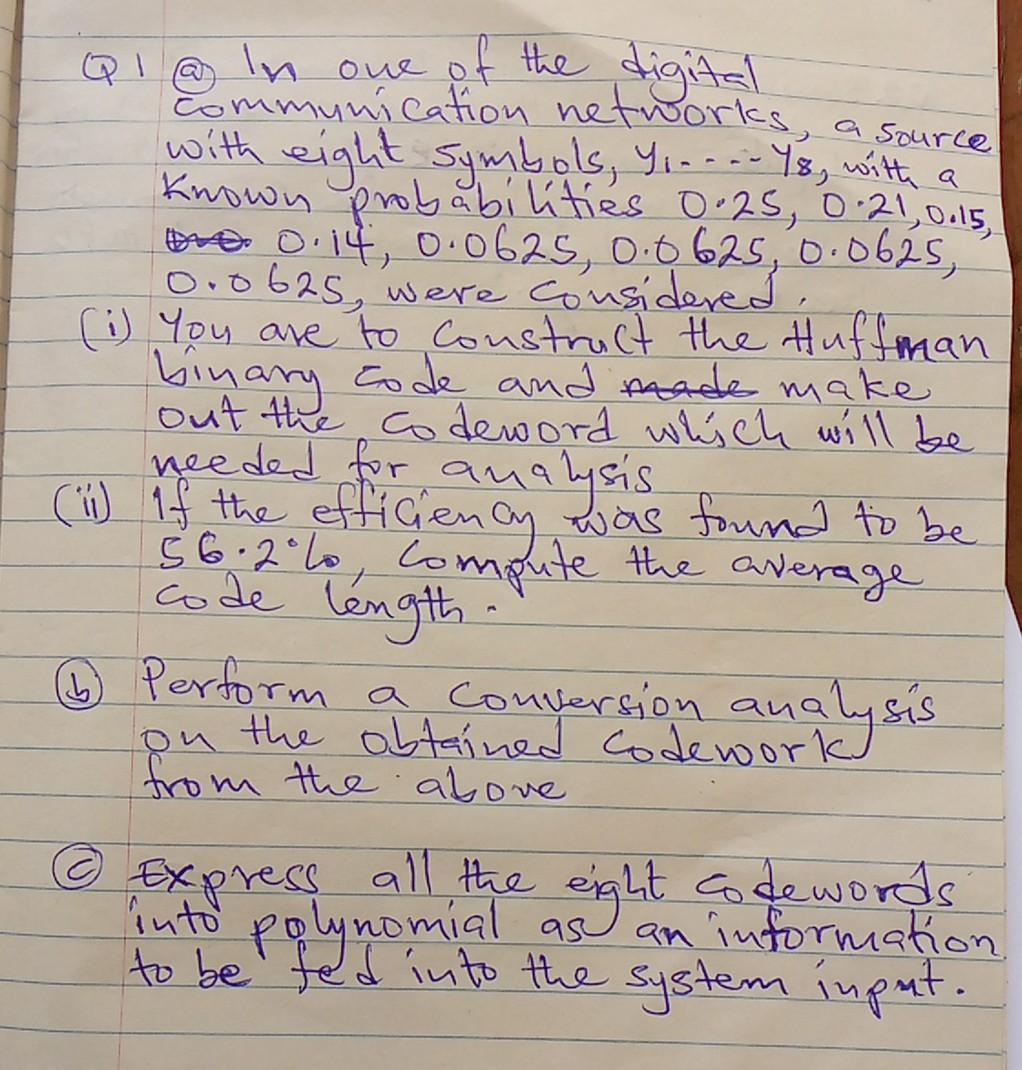 Q1 (a) In one of the digital
communication networks, a source
with eight symbols, y1.----y8, with a
known probabilities 0.25, 0.21, 0.15,
0.14, 0.0625, 0.0625, 0.0625,
0.0625, were considered.
(i) You are to construct the Huffman
binary code and made make
out the codeword which will be
needed for analysis
(ii) If the efficiency was found to be
56.2%, compute the average
code length.
(b) Perform a conversion analysis
on the obtained codework
from the above
(c) Express all the eight codewords
into polynomial as an information
to be fed into the system input.